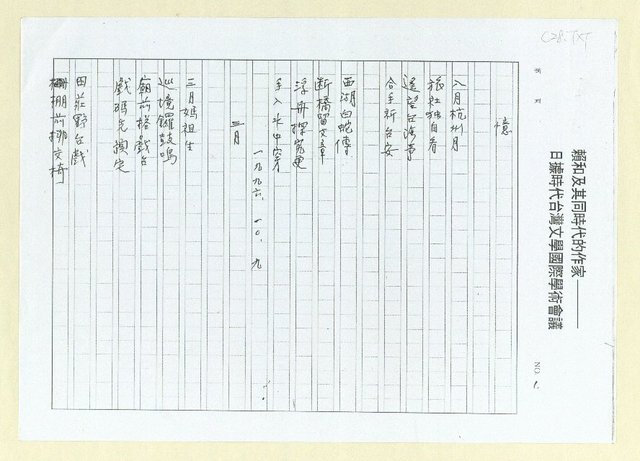 C28.TXT
賴和及其同時代的作家——
日據時代台灣文學國際學術會議
NO. 1.
憶
八月杭州月
旅社獨自看
遙望台灣
合手祈台安
西湖白蛇傳
斷橋留文章
浮舟探究更
手入水中穿
一九九六.一○.九
三月
三月媽祖生
巡境鑼鼓鳴
廟前搭戲台
戲碼先演定
田莊野台戲
棚前挪交椅